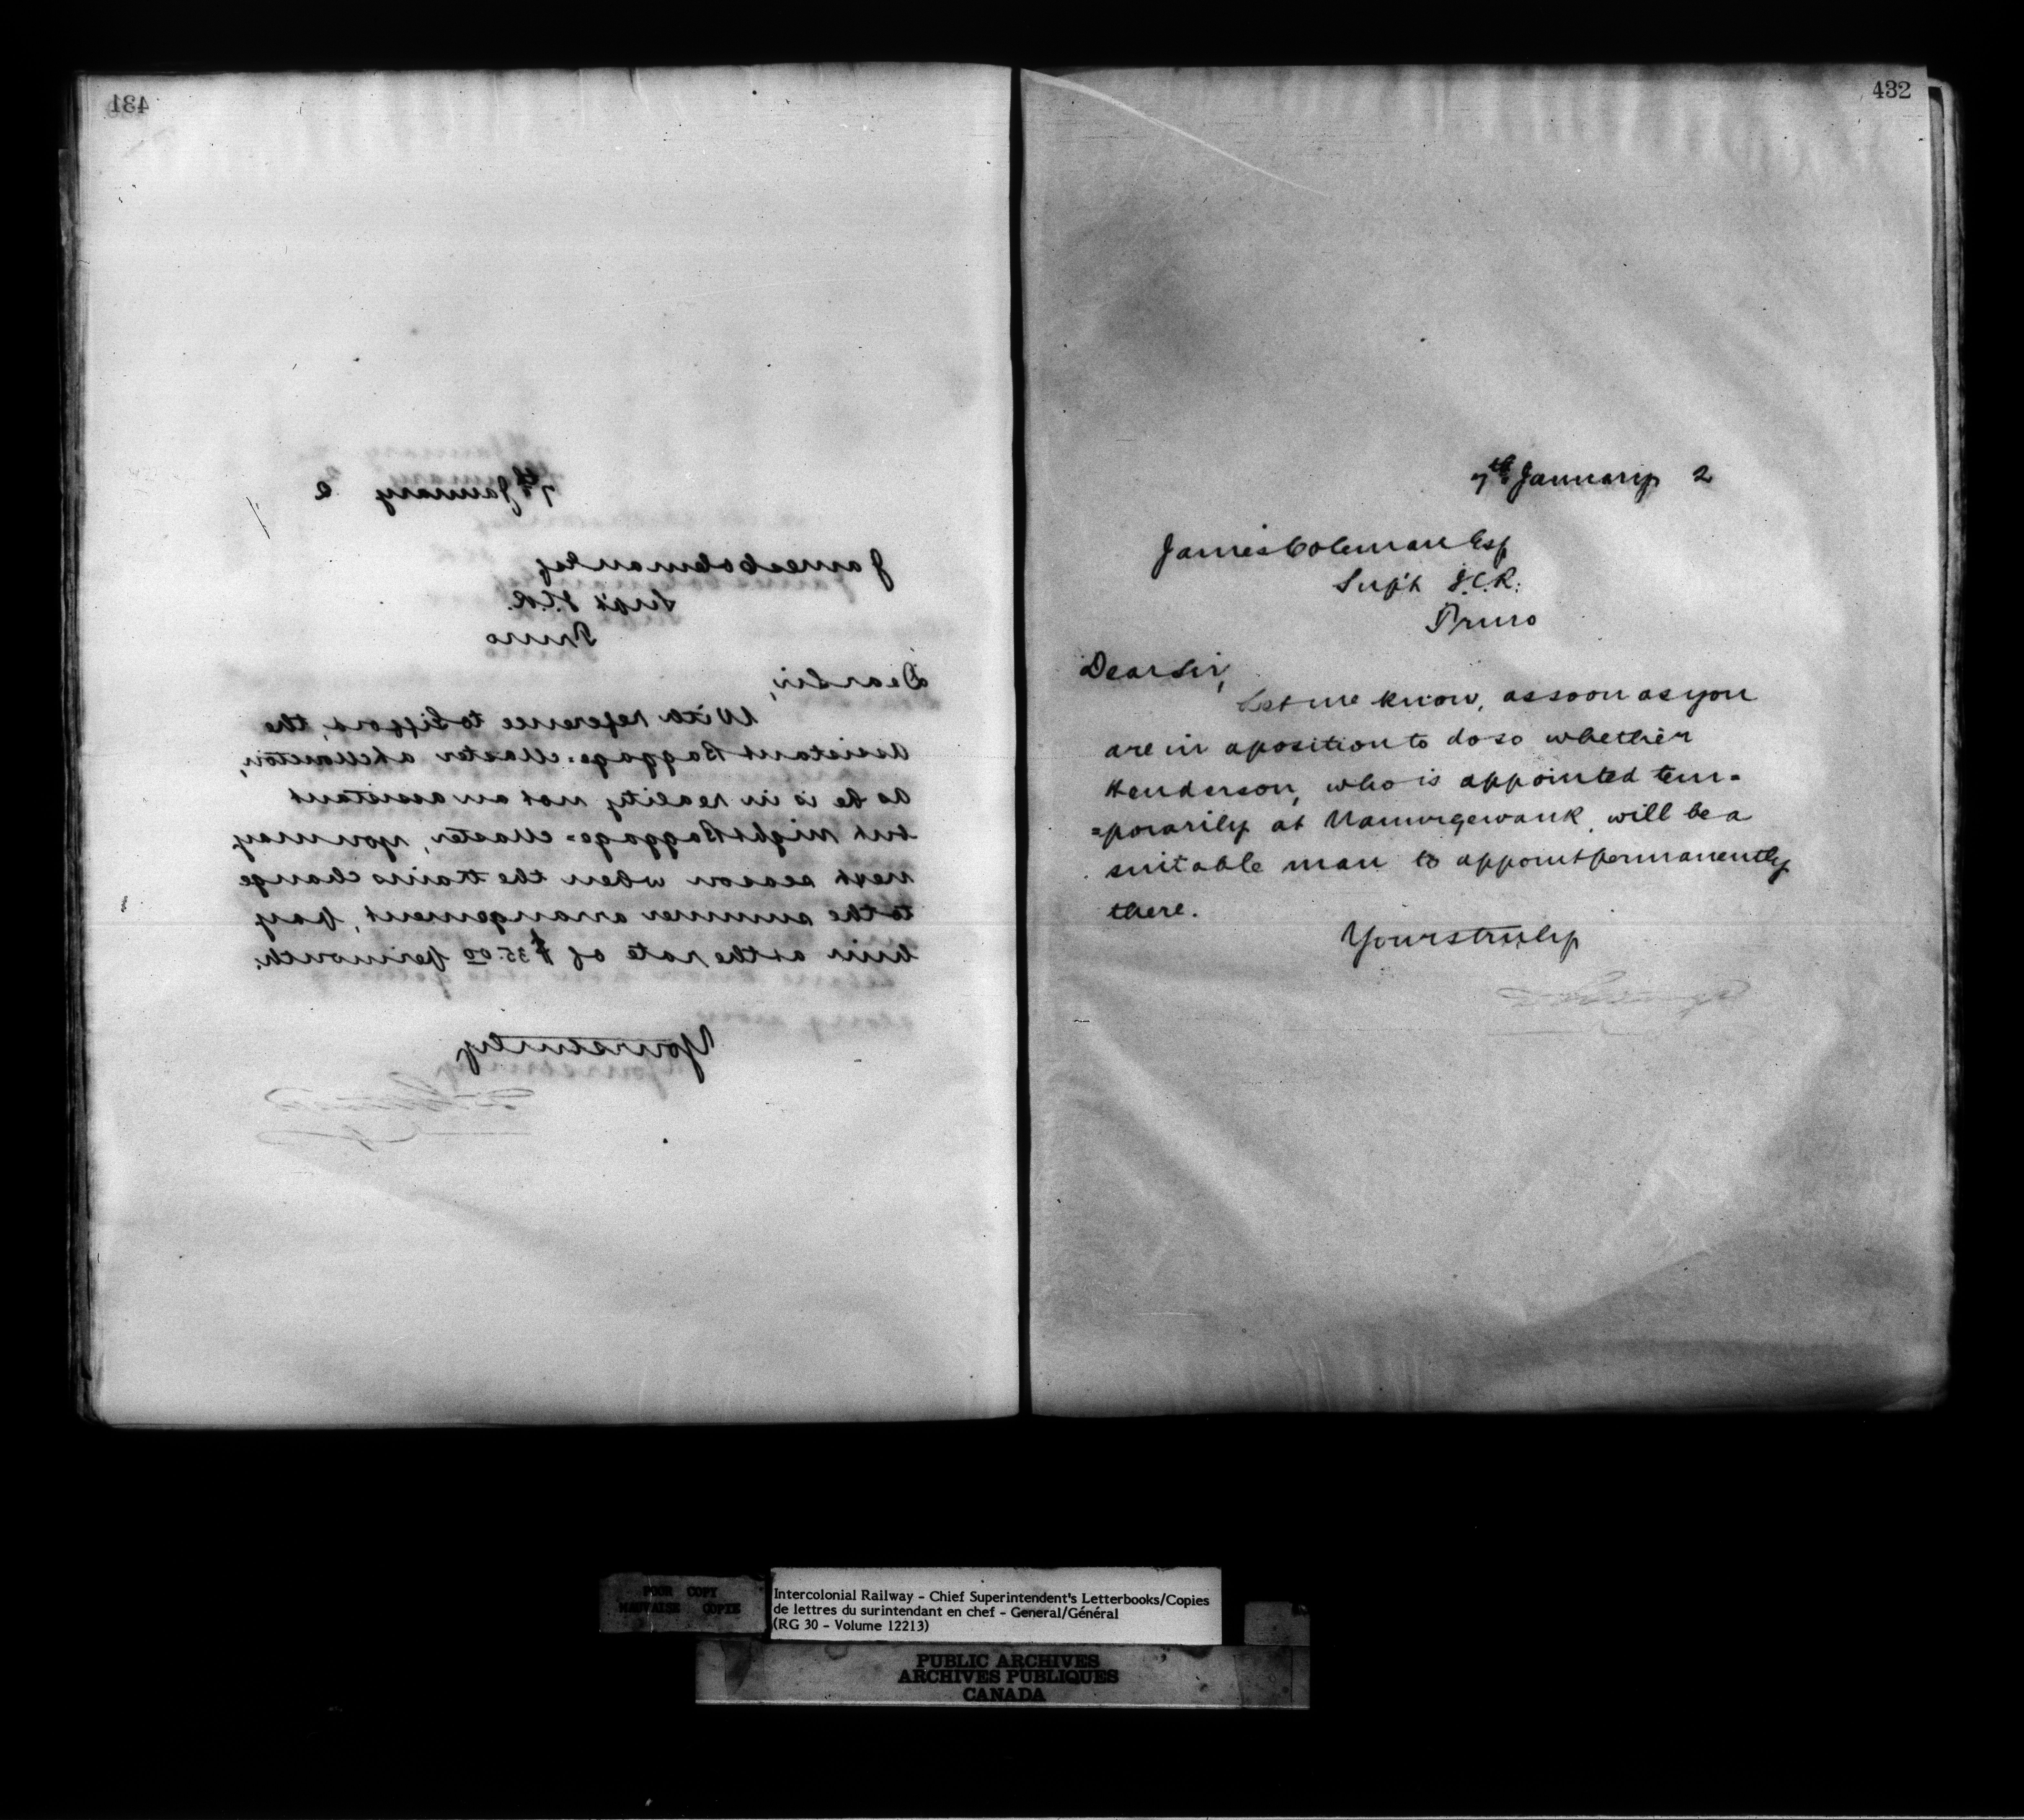 431
7th January 2
James Coleman Esq
Sup't I.C.R.
Truro
Dear Sir,
With reference to Gifford, the
Assistant Baggage=Master at Moncton,
as he is in reality not an assistant
but Night Baggage=Master, you may
next season when the trains change
to the summer arrangement, pay
him at the rate of $35.00 per month.
Yours truly
432
7th January 2
James Coleman Esq
Sup't I.C.R.
Truro
Dear Sir,
Let me know, as soon as you
are in a position to do so whether
Henderson, who is appointed tem=
=porarily at Nauwigewauk, will be a
suitable man to appoint permanently
there.
Yours truly
POOR COPY
MAUVAISE COPIE
Intercolonial Railway - Chief Superintendent's Letterbooks/Copies
de lettres du surintendant en chef - General/Général
(RG 30 - Volume 12213)
PUBLIC ARCHIVES
ARCHIVES PUBLIQUES
CANADA